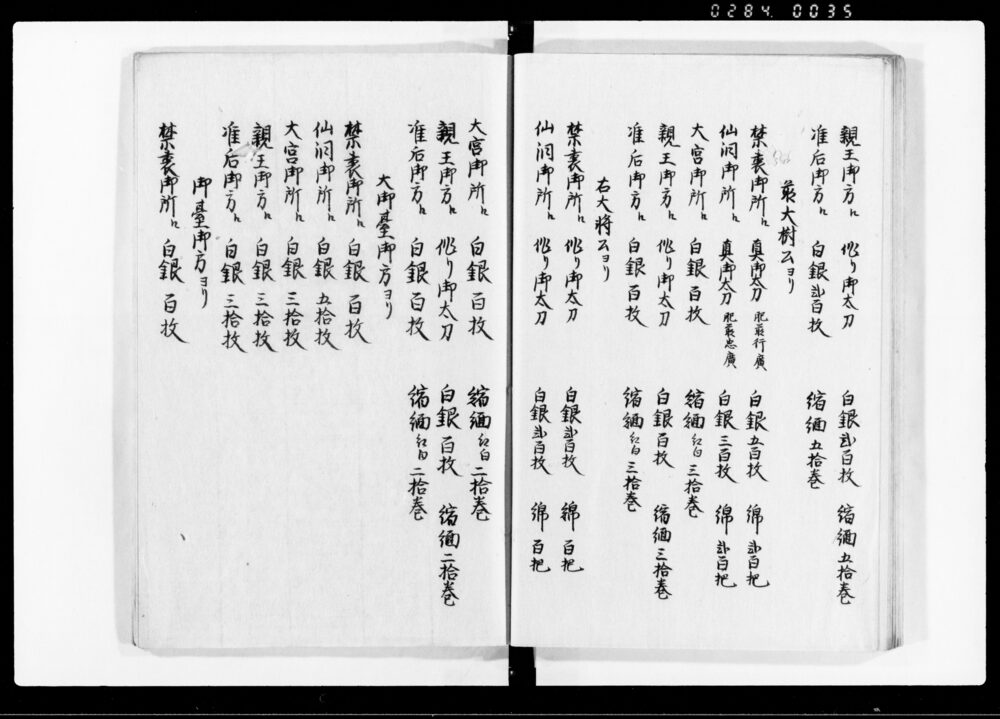 0284 0035
親王御方ニ 作り御太刀 白銀弐百枚 縮緬五拾巻
准后御方ニ 白銀弐百枚 縮緬五拾巻
前大樹公ヨリ
禁裏御所ニ 真御太刀 肥前行廣 白銀五百枚 綿弐百把
仙洞御所ニ 真御太刀 肥前忠廣 白銀三百枚 綿弐百把
大宮御所ニ 白銀百枚 縮緬紅白三拾巻
親王御方ニ 作り御太刀 白銀百枚 縮緬三拾巻
准后御方ニ 白銀百枚 縮緬紅白三拾巻
右大将公ヨリ
禁裏御所ニ 作り御太刀 白銀弐百枚 綿百把
仙洞御所ニ 作り御太刀 白銀弐百枚 綿百把
大宮御所ニ 白銀百枚 縮緬紅白二拾巻
親王御方ニ 作り御太刀 白銀百枚 縮緬二拾巻
准后御方ニ 白銀百枚 縮緬紅白二拾巻
大御臺御方ヨリ
禁裏御所ニ 白銀百枚
仙洞御所ニ 白銀五拾枚
大宮御所ニ 白銀三拾枚
親王御方ニ 白銀三拾枚
准后御方ニ 白銀三拾枚
御臺御方ヨリ
禁裏御所ニ 白銀百枚